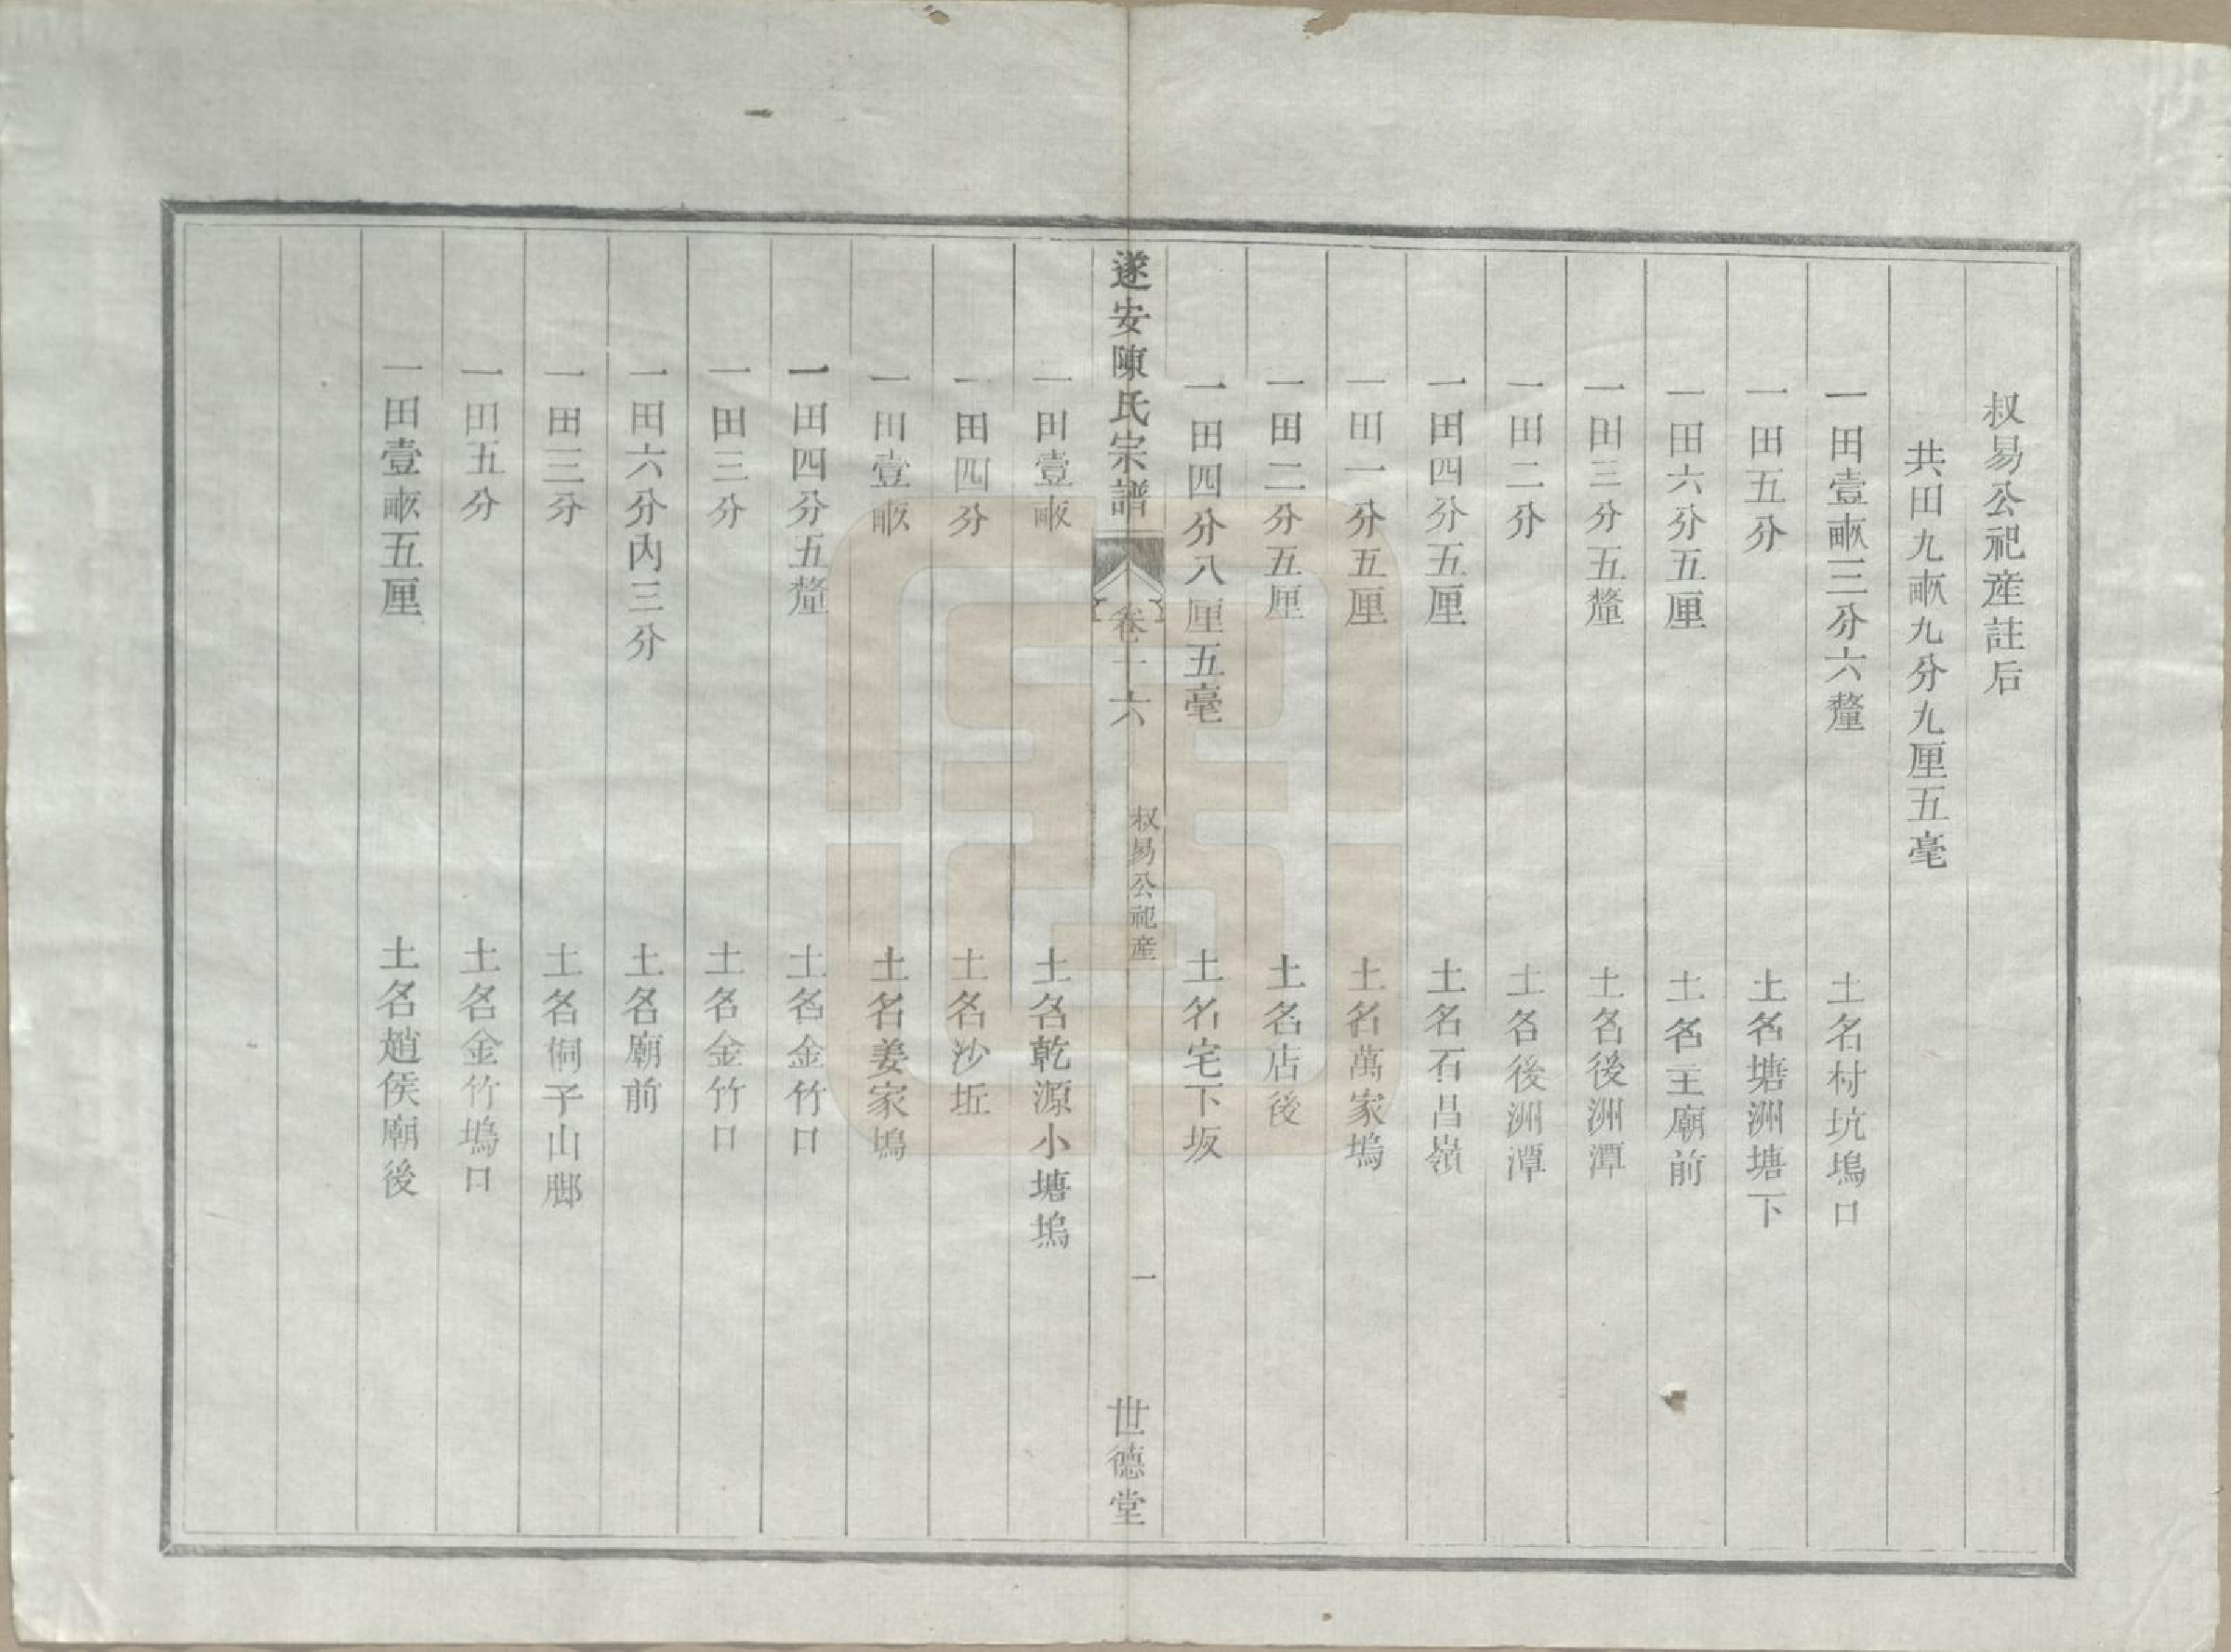 叔易公祀産註后
共田九畝九分九厘五毫
一田壹畝三分六釐 土名村坑塢口
一田五分 土名塘洲塘下
一田六分五厘 土名王廟前
一田三分五釐 土名後洲潭
一田二分 土名後洲潭
一田四分五厘 土名石昌嶺
一田一分五厘 土名萬家塢
一田二分五厘 土名店後
一田四分八厘五毫 土名宅下坂
遂安陳氏宗譜 卷十六 叔易公祀産 一 世德堂
一田壹畝 土名乾源小塘塢
一田四分 土名沙坵
一田壹畝 土名姜家塢
一田四分五釐 土名金竹口
一田三分 土名金竹口
一田六分內三分 土名廟前
一田三分 土名侗子山脚
一田五分 土名金竹塢口
一田壹畝五厘 土名趙侯廟後